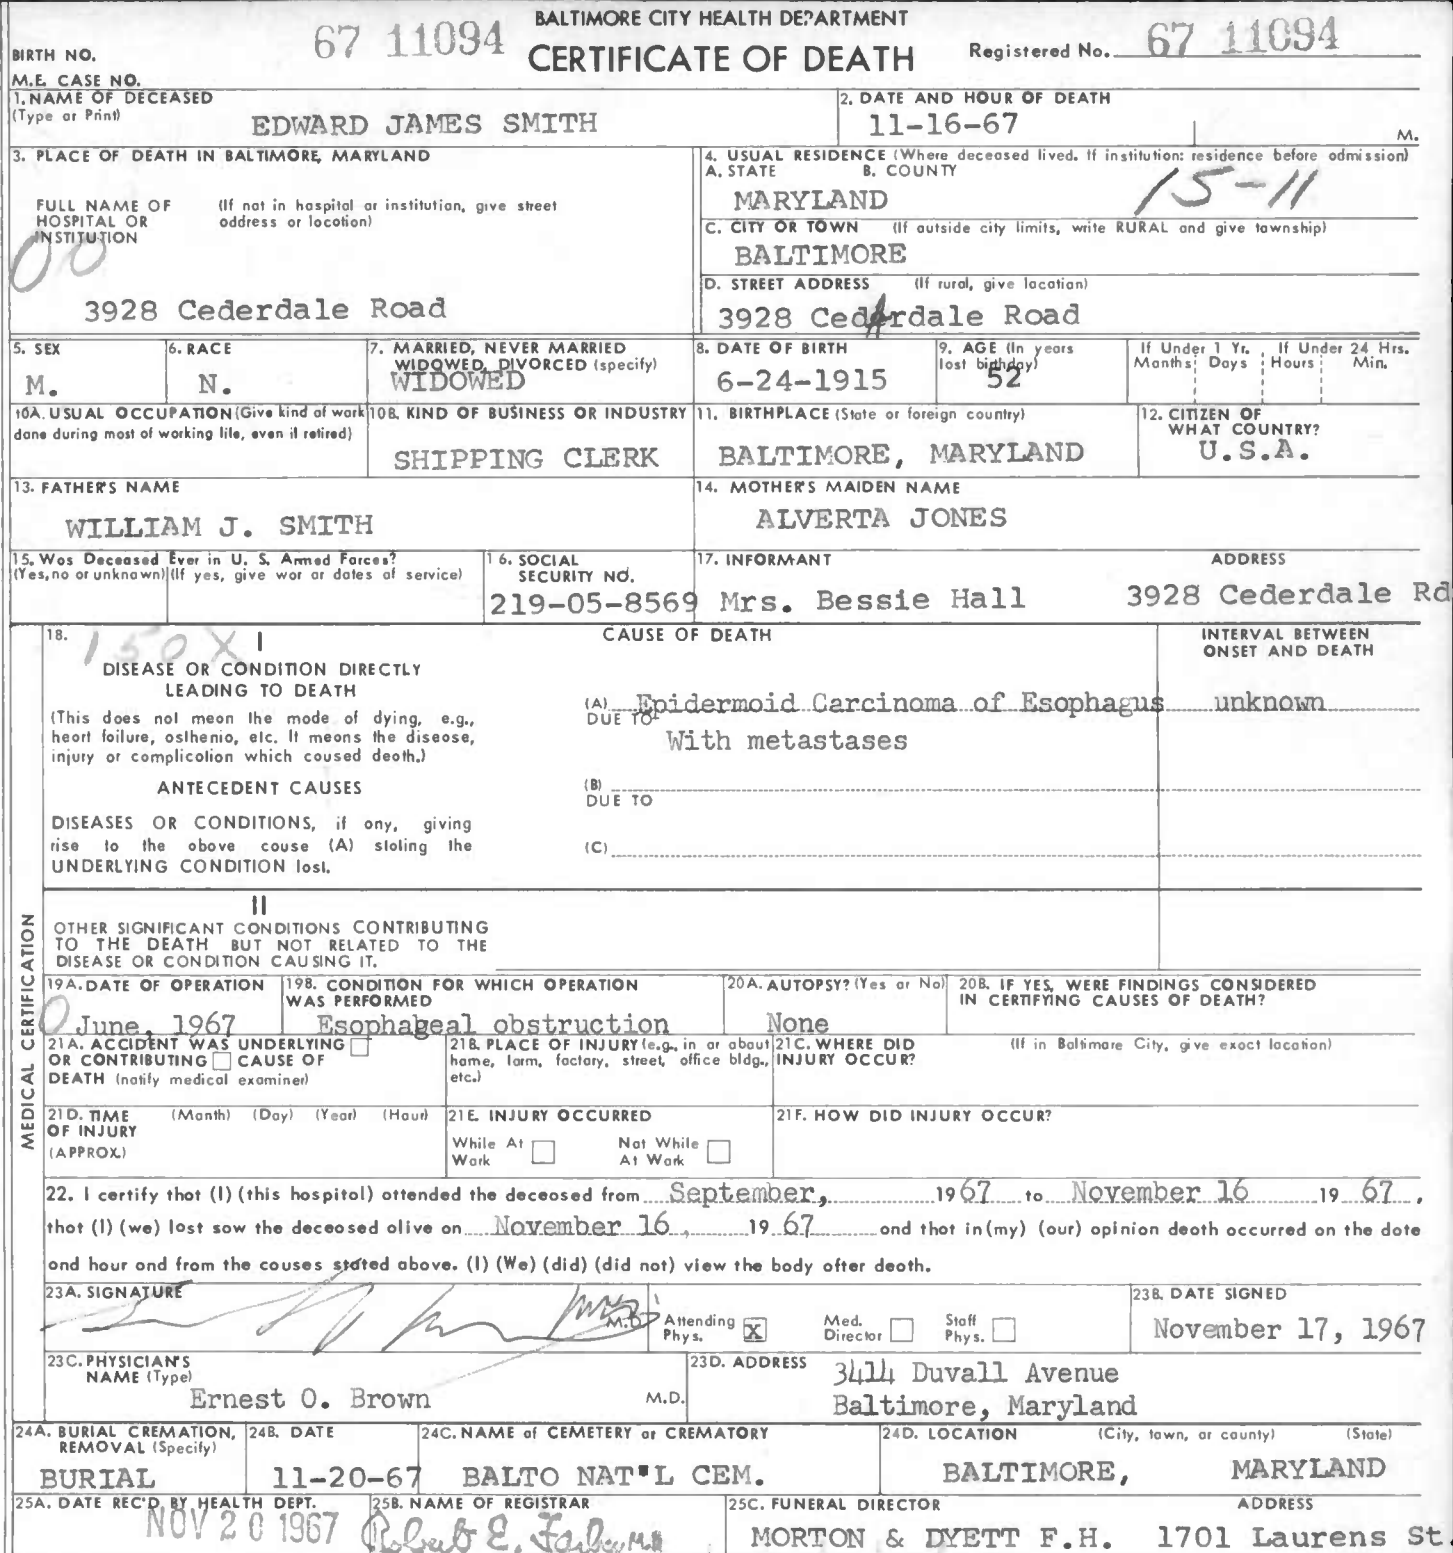 BALTIMORE CITY HEALTH DEPARTMENT
67 11094
CERTIFICATE OF DEATH
Registered No. 67 11094
BIRTH NO.
M.E. CASE NO.
1. NAME OF DECEASED
(Type or Print)
EDWARD JAMES SMITH
2. DATE AND HOUR OF DEATH
11-16-67
M.
3. PLACE OF DEATH IN BALTIMORE, MARYLAND
FULL NAME OF HOSPITAL OR INSTITUTION
(If not in hospital or institution, give street address or location)
00
3928 Cederdale Road
4. USUAL RESIDENCE (Where deceased lived. If institution: residence before admission)
A. STATE B. COUNTY
MARYLAND 15-11
C. CITY OR TOWN (If outside city limits, write RURAL and give township)
BALTIMORE
D. STREET ADDRESS (If rural, give location)
3928 Cedardale Road
5. SEX
M.
6. RACE
N.
7. MARRIED, NEVER MARRIED
WIDOWED, DIVORCED (specify)
WIDOWED
8. DATE OF BIRTH
6-24-1915
9. AGE (In years
last birthday)
52
If Under 1 Yr. If Under 24 Hrs.
Months Days Hours Min.
10A. USUAL OCCUPATION (Give kind of work
done during most of working life, even if retired)
10B. KIND OF BUSINESS OR INDUSTRY
SHIPPING CLERK
11. BIRTHPLACE (State or foreign country)
BALTIMORE, MARYLAND
12. CITIZEN OF
WHAT COUNTRY?
U.S.A.
13. FATHER'S NAME
WILLIAM J. SMITH
14. MOTHER'S MAIDEN NAME
ALVERTA JONES
15. Was Deceased Ever in U. S. Armed Forces?
(Yes, no or unknown) (If yes, give war or dates of service)
16. SOCIAL
SECURITY NO.
219-05-8569
17. INFORMANT ADDRESS
Mrs. Bessie Hall 3928 Cederdale Rd
MEDICAL CERTIFICATION
18. 150X I
DISEASE OR CONDITION DIRECTLY
LEADING TO DEATH
(This does not mean the mode of dying, e.g.,
heart failure, asthenia, etc. It means the disease,
injury or complication which caused death.)
ANTECEDENT CAUSES
DISEASES OR CONDITIONS, if any, giving
rise to the above cause (A) stating the
UNDERLYING CONDITION last.
CAUSE OF DEATH
INTERVAL BETWEEN
ONSET AND DEATH
(A) Epidermoid Carcinoma of Esophagus unknown
DUE TO
With metastases
(B)
DUE TO
(C)
II
OTHER SIGNIFICANT CONDITIONS CONTRIBUTING
TO THE DEATH BUT NOT RELATED TO THE
DISEASE OR CONDITION CAUSING IT.
19A. DATE OF OPERATION
0 June, 1967
19B. CONDITION FOR WHICH OPERATION
WAS PERFORMED
Esophageal obstruction
20A. AUTOPSY? (Yes or No)
None
20B. IF YES, WERE FINDINGS CONSIDERED
IN CERTIFYING CAUSES OF DEATH?
21A. ACCIDENT WAS UNDERLYING
OR CONTRIBUTING CAUSE OF
DEATH (notify medical examiner)
21B. PLACE OF INJURY (e.g., in or about
home, farm, factory, street, office bldg.,
etc.)
21C. WHERE DID
INJURY OCCUR?
(If in Baltimore City, give exact location)
21D. TIME (Month) (Day) (Year) (Hour)
OF INJURY
(APPROX.)
21E. INJURY OCCURRED
While At Work
Not While At Work
21F. HOW DID INJURY OCCUR?
22. I certify that (I) (this hospital) attended the deceased from September, 1967 to November 16 19 67,
that (I) (we) last saw the deceased alive on November 16, 19 67 and that in (my) (our) opinion death occurred on the date
and hour and from the causes stated above. (I) (We) (did) (did not) view the body after death.
23A. SIGNATURE
M.D.
Attending Phys. X
Med. Director
Staff Phys.
23B. DATE SIGNED
November 17, 1967
23C. PHYSICIAN'S
NAME (Type)
Ernest O. Brown M.D.
23D. ADDRESS
3414 Duvall Avenue
Baltimore, Maryland
24A. BURIAL CREMATION,
REMOVAL (Specify)
BURIAL
24B. DATE
11-20-67
24C. NAME of CEMETERY or CREMATORY
BALTO NAT'L CEM.
24D. LOCATION (City, town, or county) (State)
BALTIMORE, MARYLAND
25A. DATE REC'D BY HEALTH DEPT.
NOV 20 1967
25B. NAME OF REGISTRAR
Robert E. Farber MD
25C. FUNERAL DIRECTOR ADDRESS
MORTON & DYETT F.H. 1701 Laurens St.